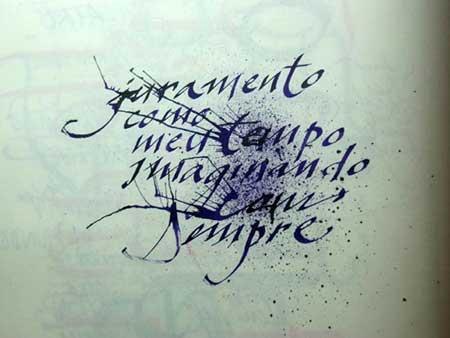 juramento
como
meu tempo
imaginando
sempre